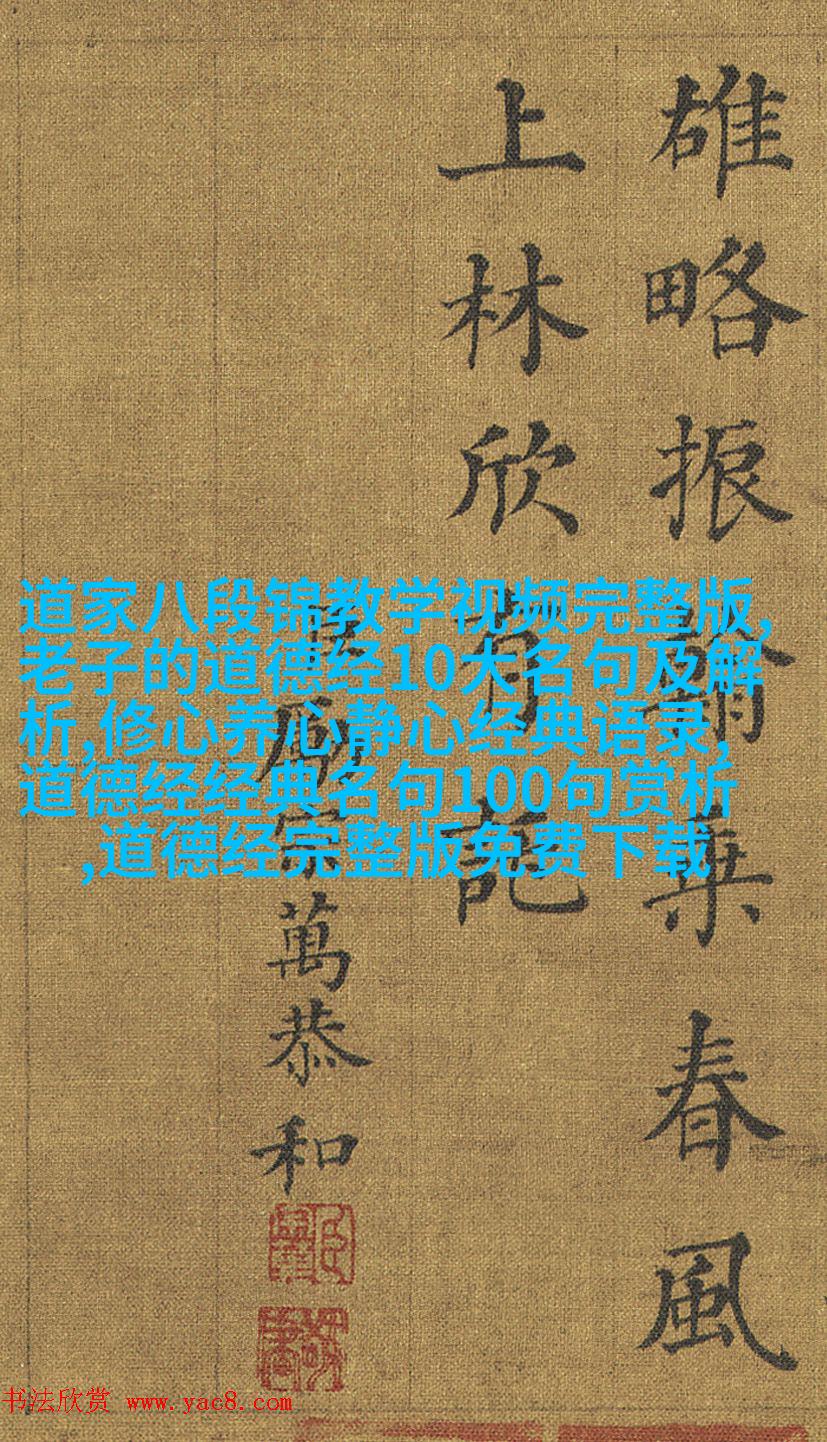 雄略振翰乘春風
上林欣有託
臣勵宗萬恭和
道家八段锦教学视频完整版,
老子的道德经10大名句及解
析,修心养心静心经典语录,
道德经经典名句100句赏析
,道德经完整版免费下载
书法欣赏 www.yac8.com